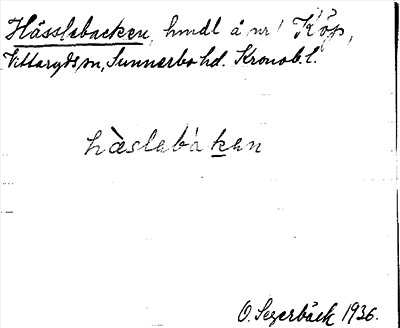 Hässlebacken, hmdl å nr 1 Köp,
Vittaryds sn, Sunnerbo hd. Kronob. l.
hàslebáken
O. Segerbäck 1936.